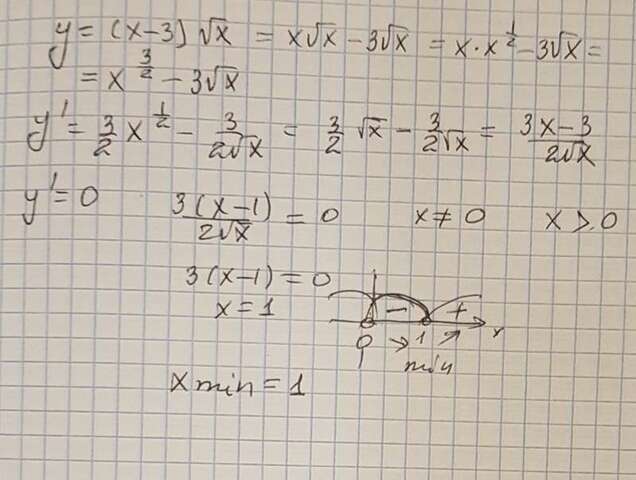 y = (x-3)√x = x√x - 3√x = x·x^(1/2) - 3√x =
= x^(3/2) - 3√x
y' = 3/2 x^(1/2) - 3/(2√x) = 3/2 √x - 3/(2√x) = (3x-3)/(2√x)
y' = 0 3(x-1)/(2√x) = 0 x ≠ 0 x > 0
3(x-1) = 0
x = 1
- +
0 1 x
min
x min = 1